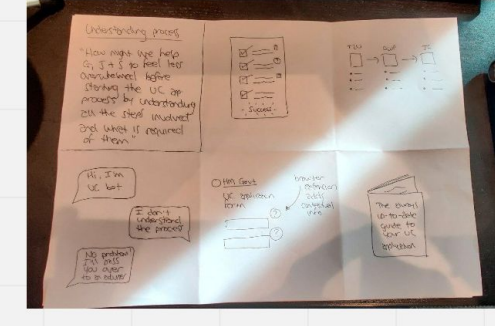 Understanding process
"How might we help
G, J + S to feel less
overwhelmed before
starting the UC app
process by understanding
all the steps involved
and what is required
of them"
Success
Hi, I'm
UC bot
I don't
understand
the process
No problem
I'll pass
you over
to
HM Govt
UC application
form
browser
extension
adds
contextual
?
?
The
up-to-date
guide to
your UC
application